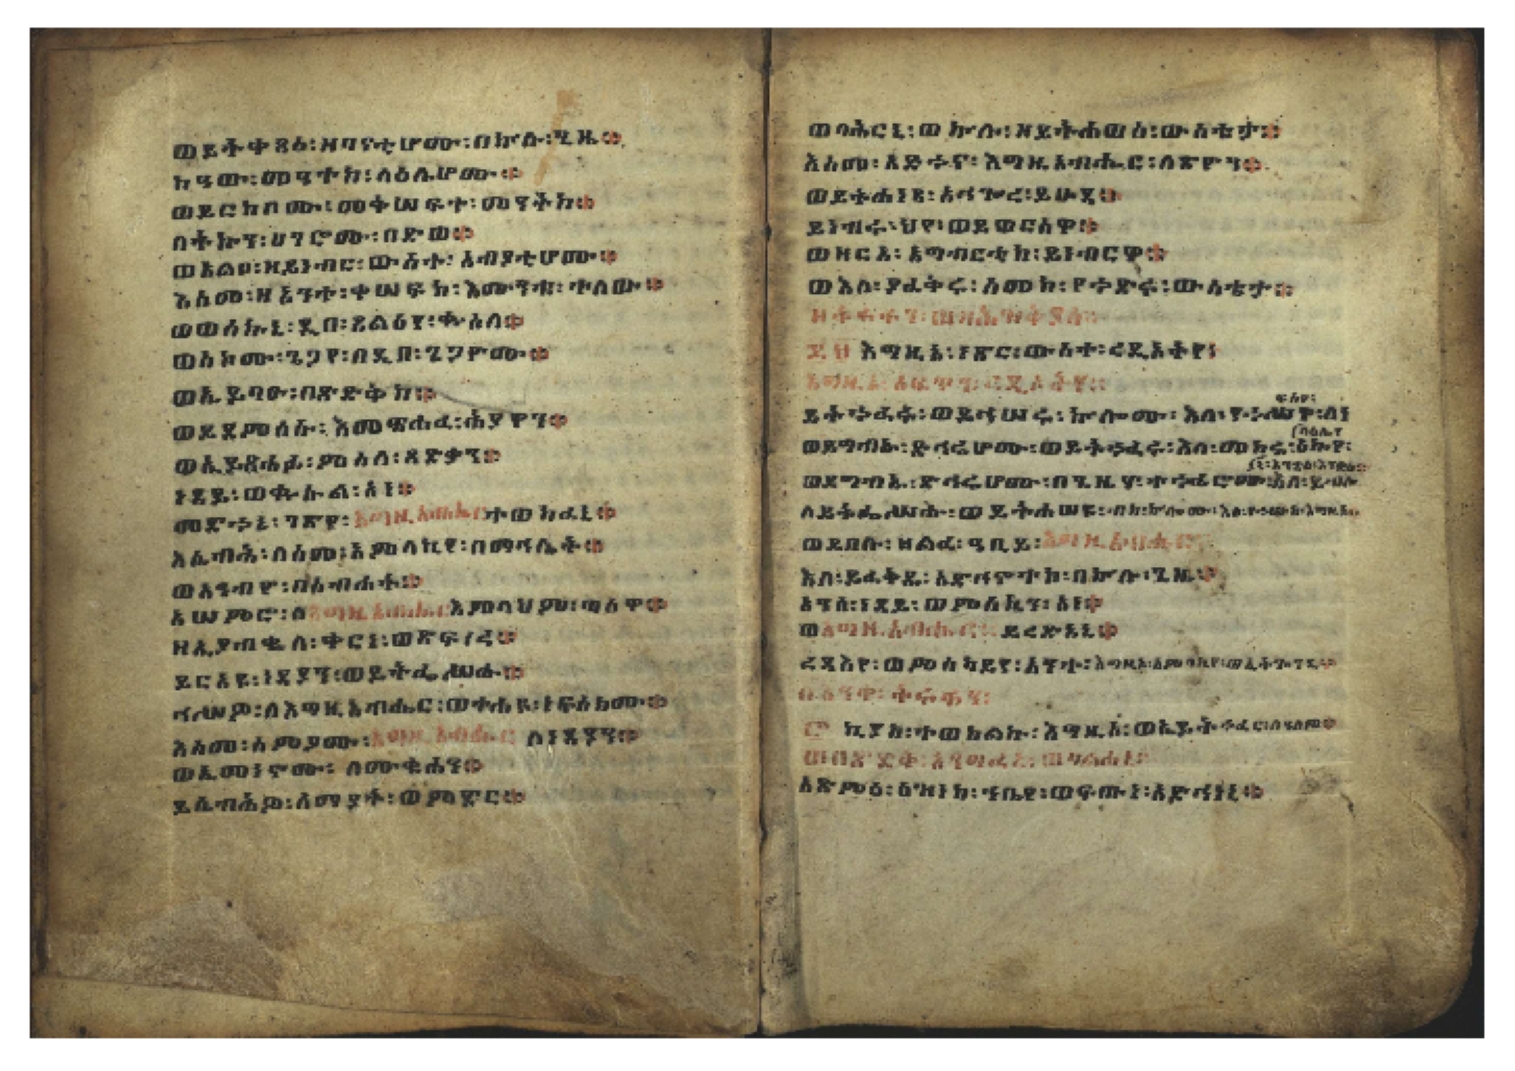 ወይትቀጻዕ፡ዘባናቲሆሙ፡በኵሉ፡ጊዜ።
ከዓው፡መዓተከ፡ላዕሌሆሙ።
ወይርከቦሙ፡መቅሠፍተ፡መዓትከ።
ለትኩን፡ሀገሮሙ፡በድወ።
ወአልቦ፡ዘይነብር፡ውስተ፡አብያቲሆሙ።
እስመ፡ዘአንተ፡ቀሠፍከ፡እሙንቱ፡ተለው።
ወወሰኩኒ፡ዲበ፡ጸልዕየ፡ቍስለ።
ወስኮሙ፡ጌጋየ፡በዲበ፡ጌጋዮሙ።
ወኢይባኡ፡በጽድቅከ።
ወይደምሰሱ፡እመጽሐፈ፡ሕያዋን።
ወኢይጸሐፉ፡ምስለ፡ጻድቃን።
ነዳይ፡ወቍሱል፡አነ።
መድኀኒ፡ገጽየ፡እግዚአብሔር፡ተወክፈኒ።
እሴብሕ፡ለስመ፡አምላኪየ፡በማኅሌት።
ወአዓብዮ፡በስብሐት።
አሠምሮ፡ለእግዚአብሔር፡እምላህም፡ጣዕዋ።
ዘኢያብቈለ፡ቀርነ፡ወጽፍረ።
ይርአዩ፡ነዳያን፡ወይትፌሥሑ።
ኅሥዎ፡ለእግዚአብሔር፡ወተሐዩ፡ነፍስክሙ።
እስመ፡ሰምዖሙ፡እግዚአብሔር፡ለነዳያን።
ወኢመነኖሙ፡ለሙቁሓን።
ይሴብሕዎ፡ሰማያት፡ወምድር።
ወባሕርኒ፡ወኵሉ፡ዘይትሐወስ፡ውስቴታ።
እስመ፡አድኀና፡እግዚአብሔር፡ለጽዮን።
ወይትሐነፃ፡አህጉረ፡ይሁዳ።
ይነብሩ፡ህየ፡ወይወርስዋ።
ወዘርአ፡አግብርቲከ፡ይነብርዋ።
ወእለ፡ያፈቅሩ፡ስመከ፡የኀድሩ፡ውስቴታ።
እግዚኦ፡ነጽር፡ውስተ፡ረዲኦትየ፡
ይትኀፈሩ፡ወይኅሠሩ፡ኵሎሙ፡እለ፡የኀሥዋ፡ለነ
ፍስየ፡
ወይግብኡ፡ድኅሬሆሙ፡ወይትኀፈሩ፡እለ፡መከሩ፡
ወይግብኡ፡ድኅሬሆሙ፡በጊዜሃ፡
ለይትፌሥሑ፡ወይትሐሠዩ፡
ወይበሉ፡ዘልፈ፡ዓቢይ፡እግዚአብሔር፡
እለ፡ይፈቅዱ፡አድኅኖተከ፡በኵሉ፡ጊዜ።
አንሰ፡ነዳይ፡ወምስኪን፡አነ።
ወእግዚአብሔር፡ይረድአኒ።
ረዳእየ፡ወምስካይየ፡አንተ፡
ኪያከ፡ተወከልኩ፡እግዚኦ፡
ወበጽድቅ፡አንግፈኒ፡ወባልሐኒ፡
አጽምዕ፡ዕዝነከ፡ኀቤየ፡ወፍጡነ፡አድኅነኒ።